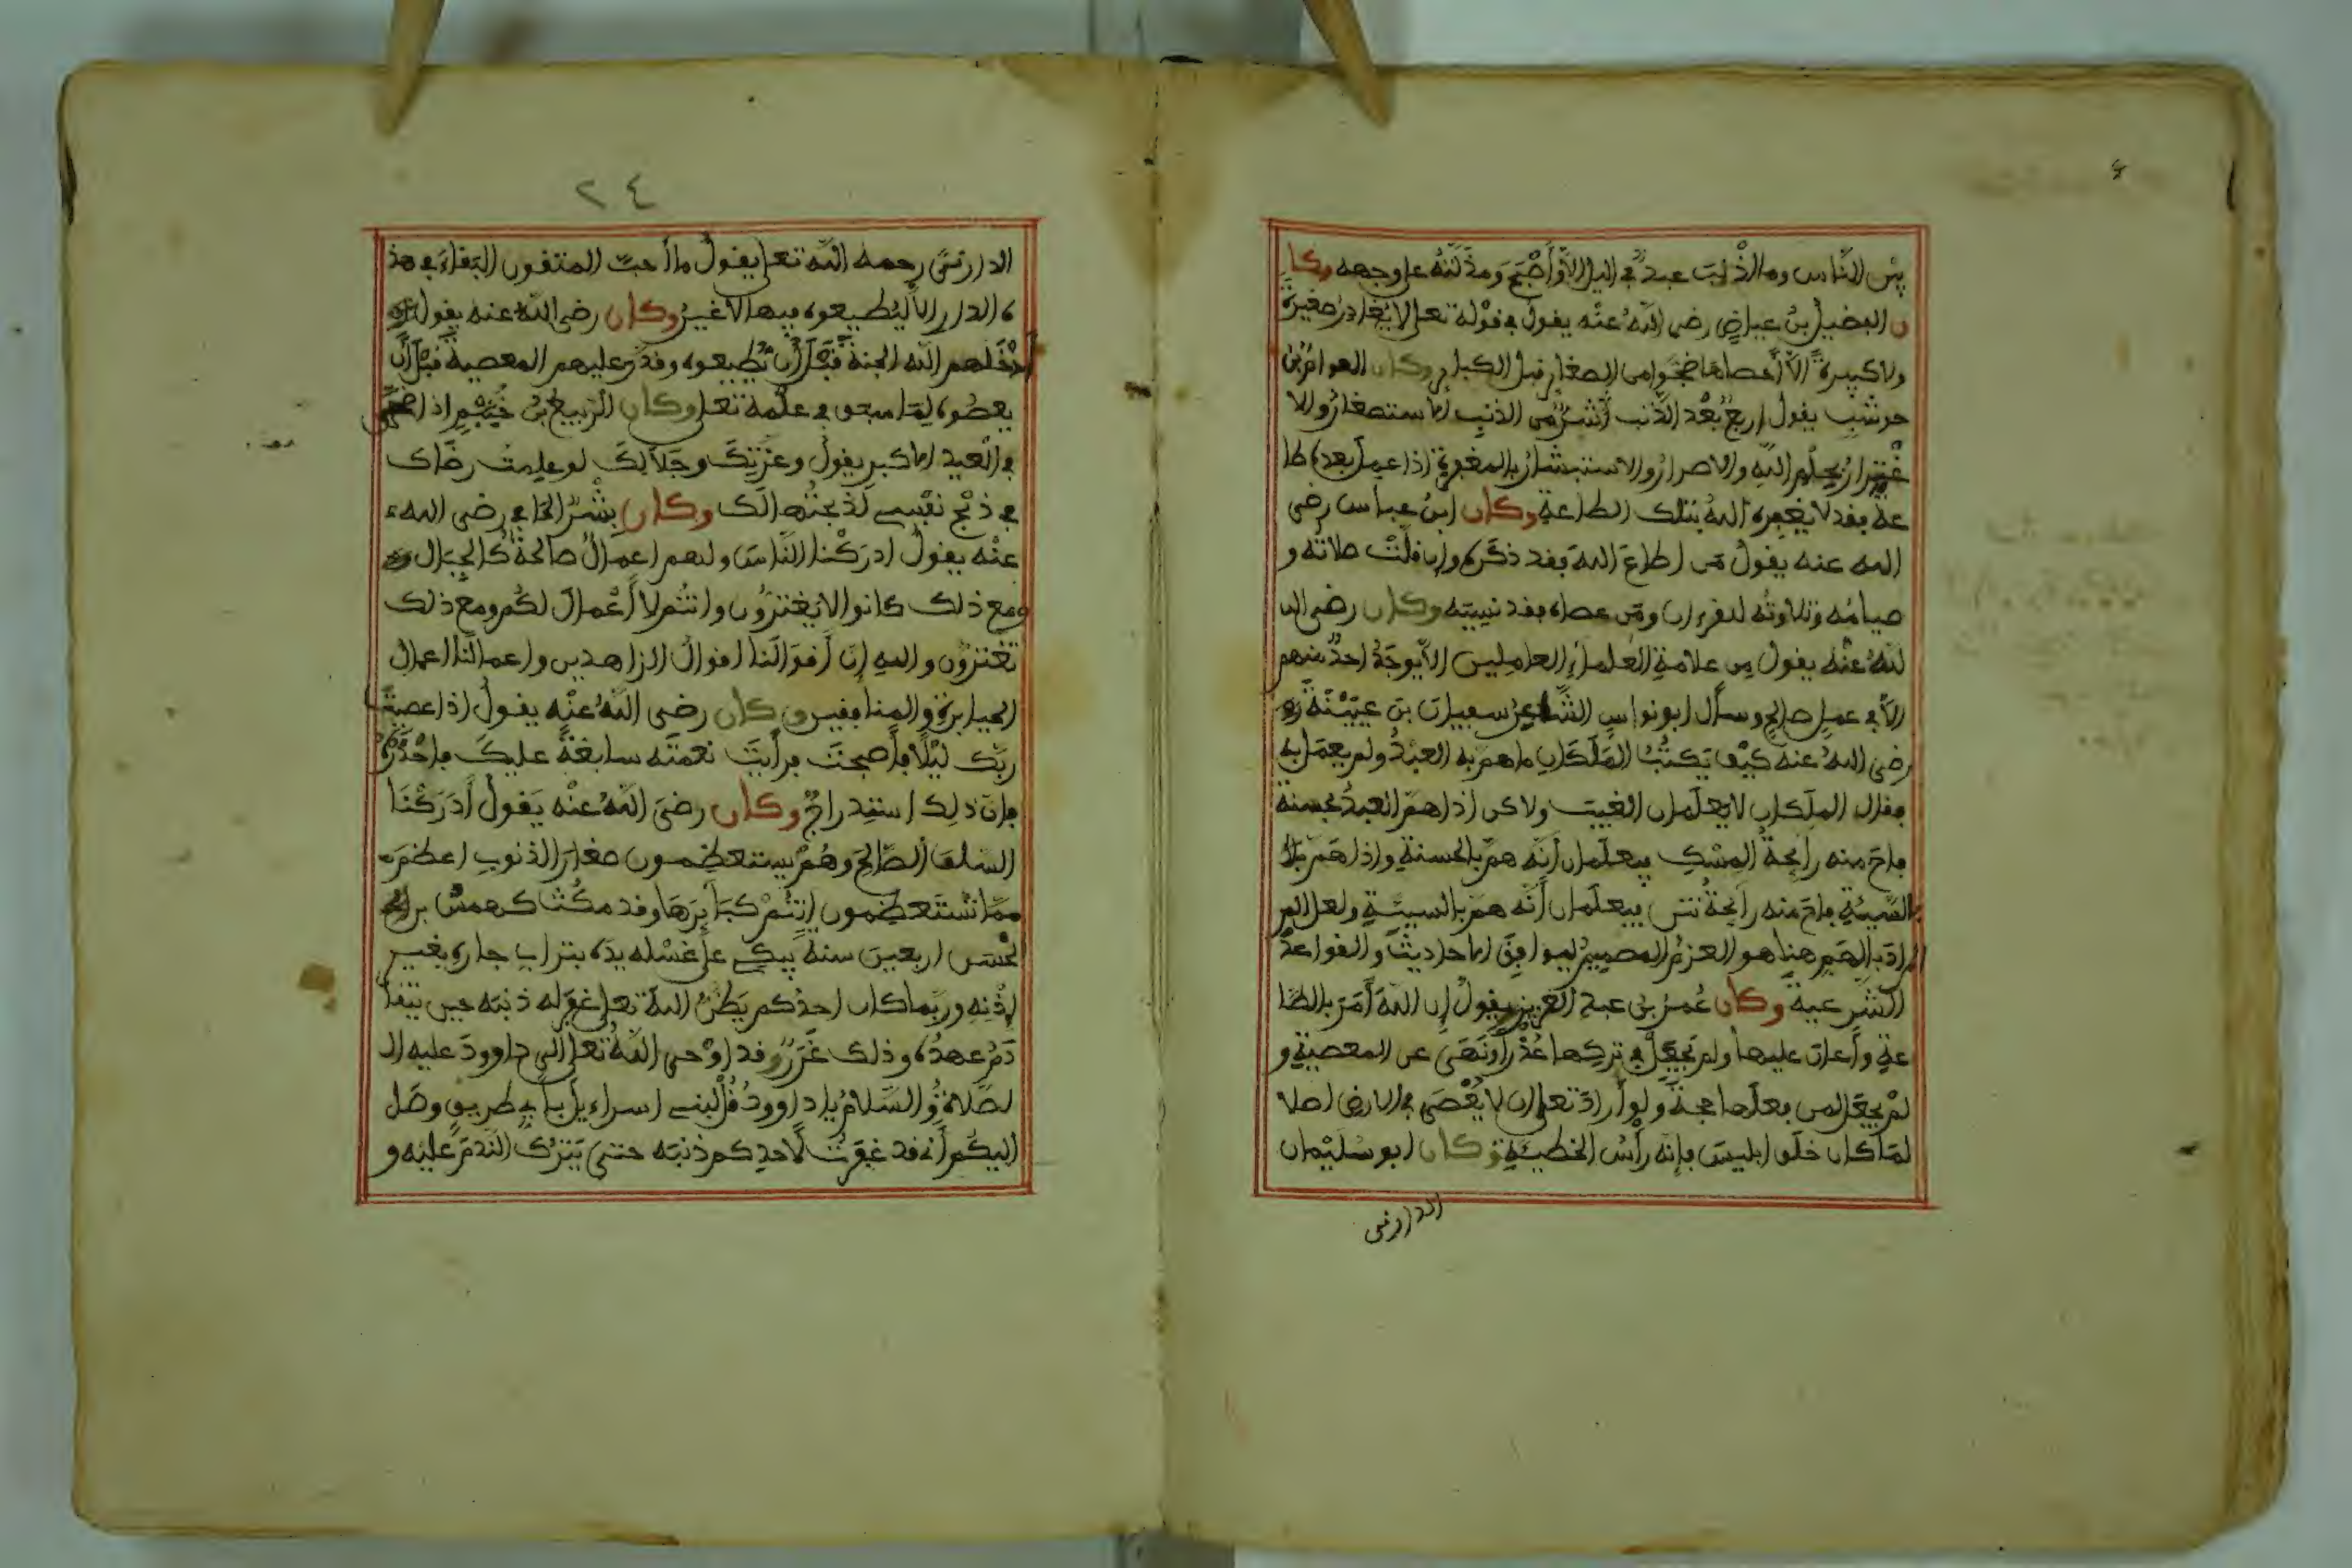 بين الناس وما أذنب عبد في اليل إلا وأصبح ومذلته على وجهه وكا
ن الفضيل بن عياض رضي الله عنه يقول في قوله تعلى لا يغادر صغيرة
ولا كبيرة إلا أحصاها ضجوا من الصغاير قبل الكباير وكان العوام بن
حوشب يقول اربع بعد الذنب أشر من الذنب الاستصغار والا
غترار بحلم الله والاصرار والاستبشار بالمغفرة اذا عمل بعده طا
عة فقد لا يغفره الله بتلك الطاعة وكان ابن عباس رضي
الله عنه يقول من اطاع الله فقد ذكره وان قلت صلاته و
صيامه وتلاوته للقرءان ومن عصاه فقد نسيه وكان رضي ال
لله عنه يقول من علامة العلماء العاملين الا يوجد احد منهم
الا في عمل صالح وسأل ابو نواس الشاعر سفيان بن عيينة
رضي الله عنه كيف يكتب الملكان ما هم به العبد ولم يعمل به
فقال الملكان لا يعلمان الغيب ولاكن اذا هم العبد بحسنة
فاح منه رائحة المسك فيعلمان أنه هم بالحسنة واذا هم
بالسيئة فاح منه رائحة نتن فيعلمان أنه هم بالسيئة ولعل المر
المراد بالهم هنا هو العزم المصمم ليوافق الاحاديث والقواعد
الشرعية وكان عمر بن عبد العزيز يقول إن الله أمر بالطا
عة وأعان عليها ولم يجعل في تركها عذرا ونهى عن المعصية و
لم يجعل لمن فعلها حجة ولو أراد تعلى ان لا يعصى في الارض اصلا
لما كان خلق ابليس فإنه رأس الخطيئة وكان ابو سليمان
الدارني
٢٤
الدارني رحمه الله تعلى يقول ما أحب المتقون البقاء في هذ
ه الدار الا ليطيعوه فيها لا غير وكان رضي الله عنه يقول
أدخلهم الله الجنة قبل أن يطيعوه وقدر عليهم المعصية قبل أن
يعصوه لما سبق في علمه تعلى وكان الربيع بن خيثم اذا
في العيد الاكبر يقول وعزتك وجلالك لو علمت رضاك
في ذبح نفسي لذبحتها لك وكان بشر الحافي رضي الله
عنه يقول ادركنا الناس ولهم اعمال صالحة كالجبال
ومع ذلك كانوا لا يغترون وانتم لا أعمال لكم ومع ذلك
تغترون والله إن أقوالنا اقوال الزاهدين واعمالنا اعمال
الجبابرة والمنافقين وكان رضي الله عنه يقول اذا عصيت
ربك ليلا فأصبحت فرأيت نعمته سابغة عليك فاحذر
فإن ذلك استدراج وكان رضي الله عنه يقول أدركنا
السلف الصالح وهم يستعظمون صغار الذنوب اعظم
مما تستعظمون انتم كبايرها وقد مكث كهمس بن
الحسن اربعين سنة يبكي على غسله يده بتراب جاره بغير
إذنه وربما كان احدكم يظن الله تعلى غفر له ذنبه حين تقا
دم عهده وذلك غرر وقد أوحى الله تعلى الى داوود عليه ال
لصلاة والسلام ياداوود قل لبني اسراءيل بأي طريق وصل
اليكم أني قد غفرت لاحدكم ذنبه حتى يترك الندم عليه و